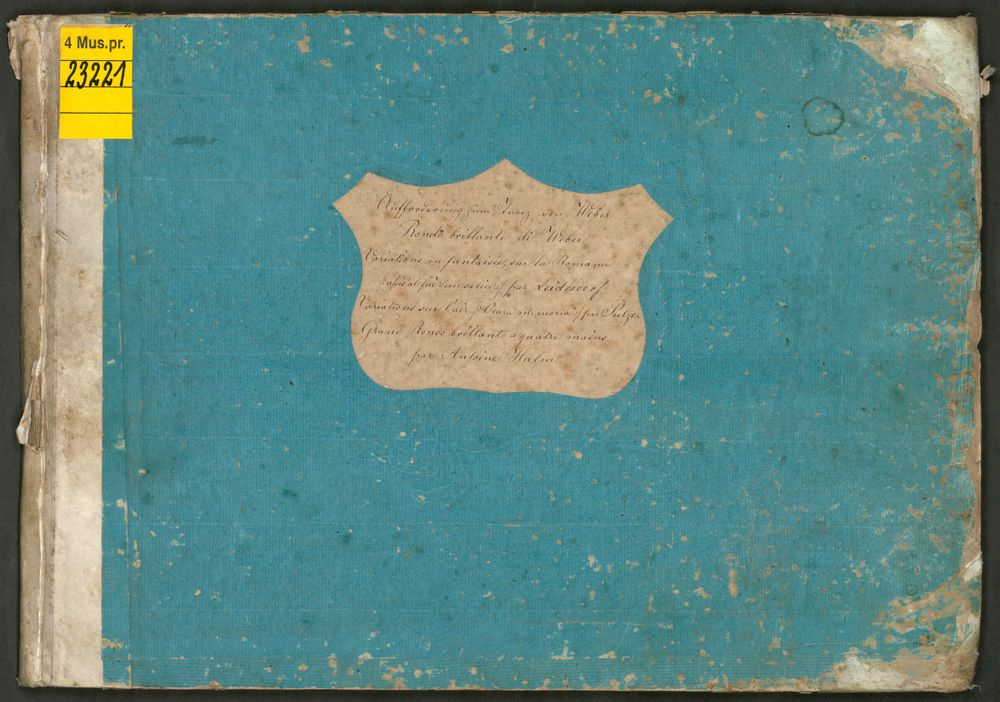 4 Mus.pr.
23221
Aufforderung zum Tanz von Weber
Rondo brillante di Weber
Variations en fantaisie, sur la Romance
par Leidesdorf
Variations sur l'air /: O cara memoria :/ par
Grand Rondo brillant a quatre mains
par Antoine Halm